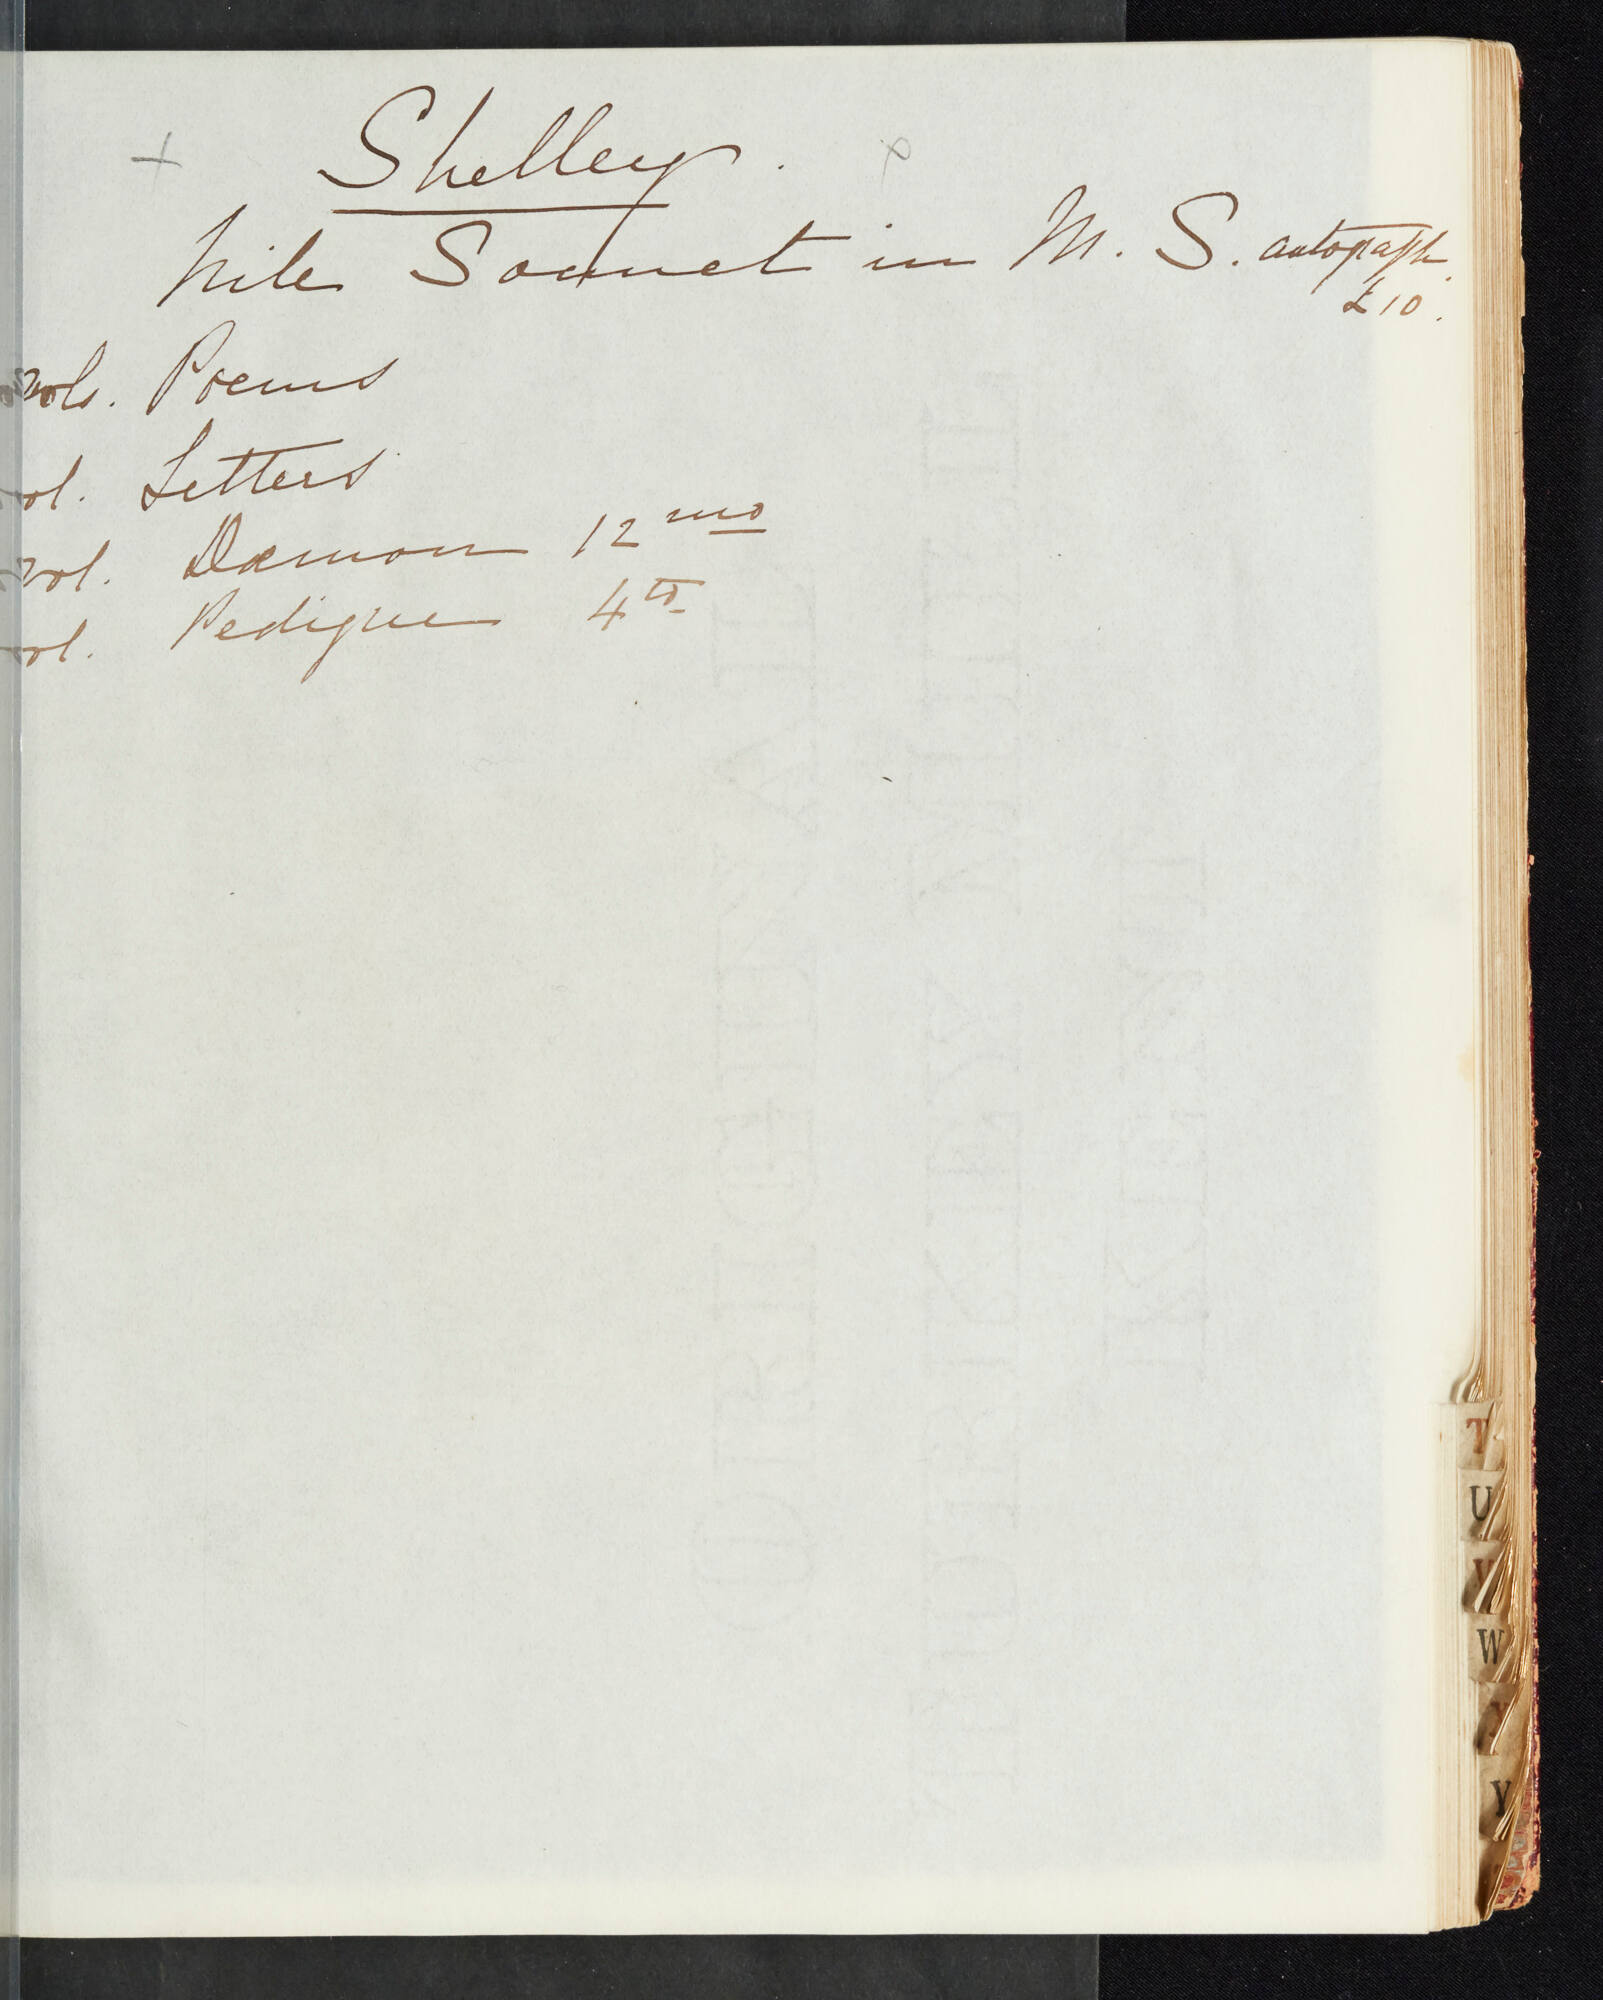 Shelley.
Nile Sonnet in M. S. autograph
£10.
vols. Poems
vol. Letters
vol. Dæmon 12mo
vol. Pedigree 4to
T
U
V
W
X
Y